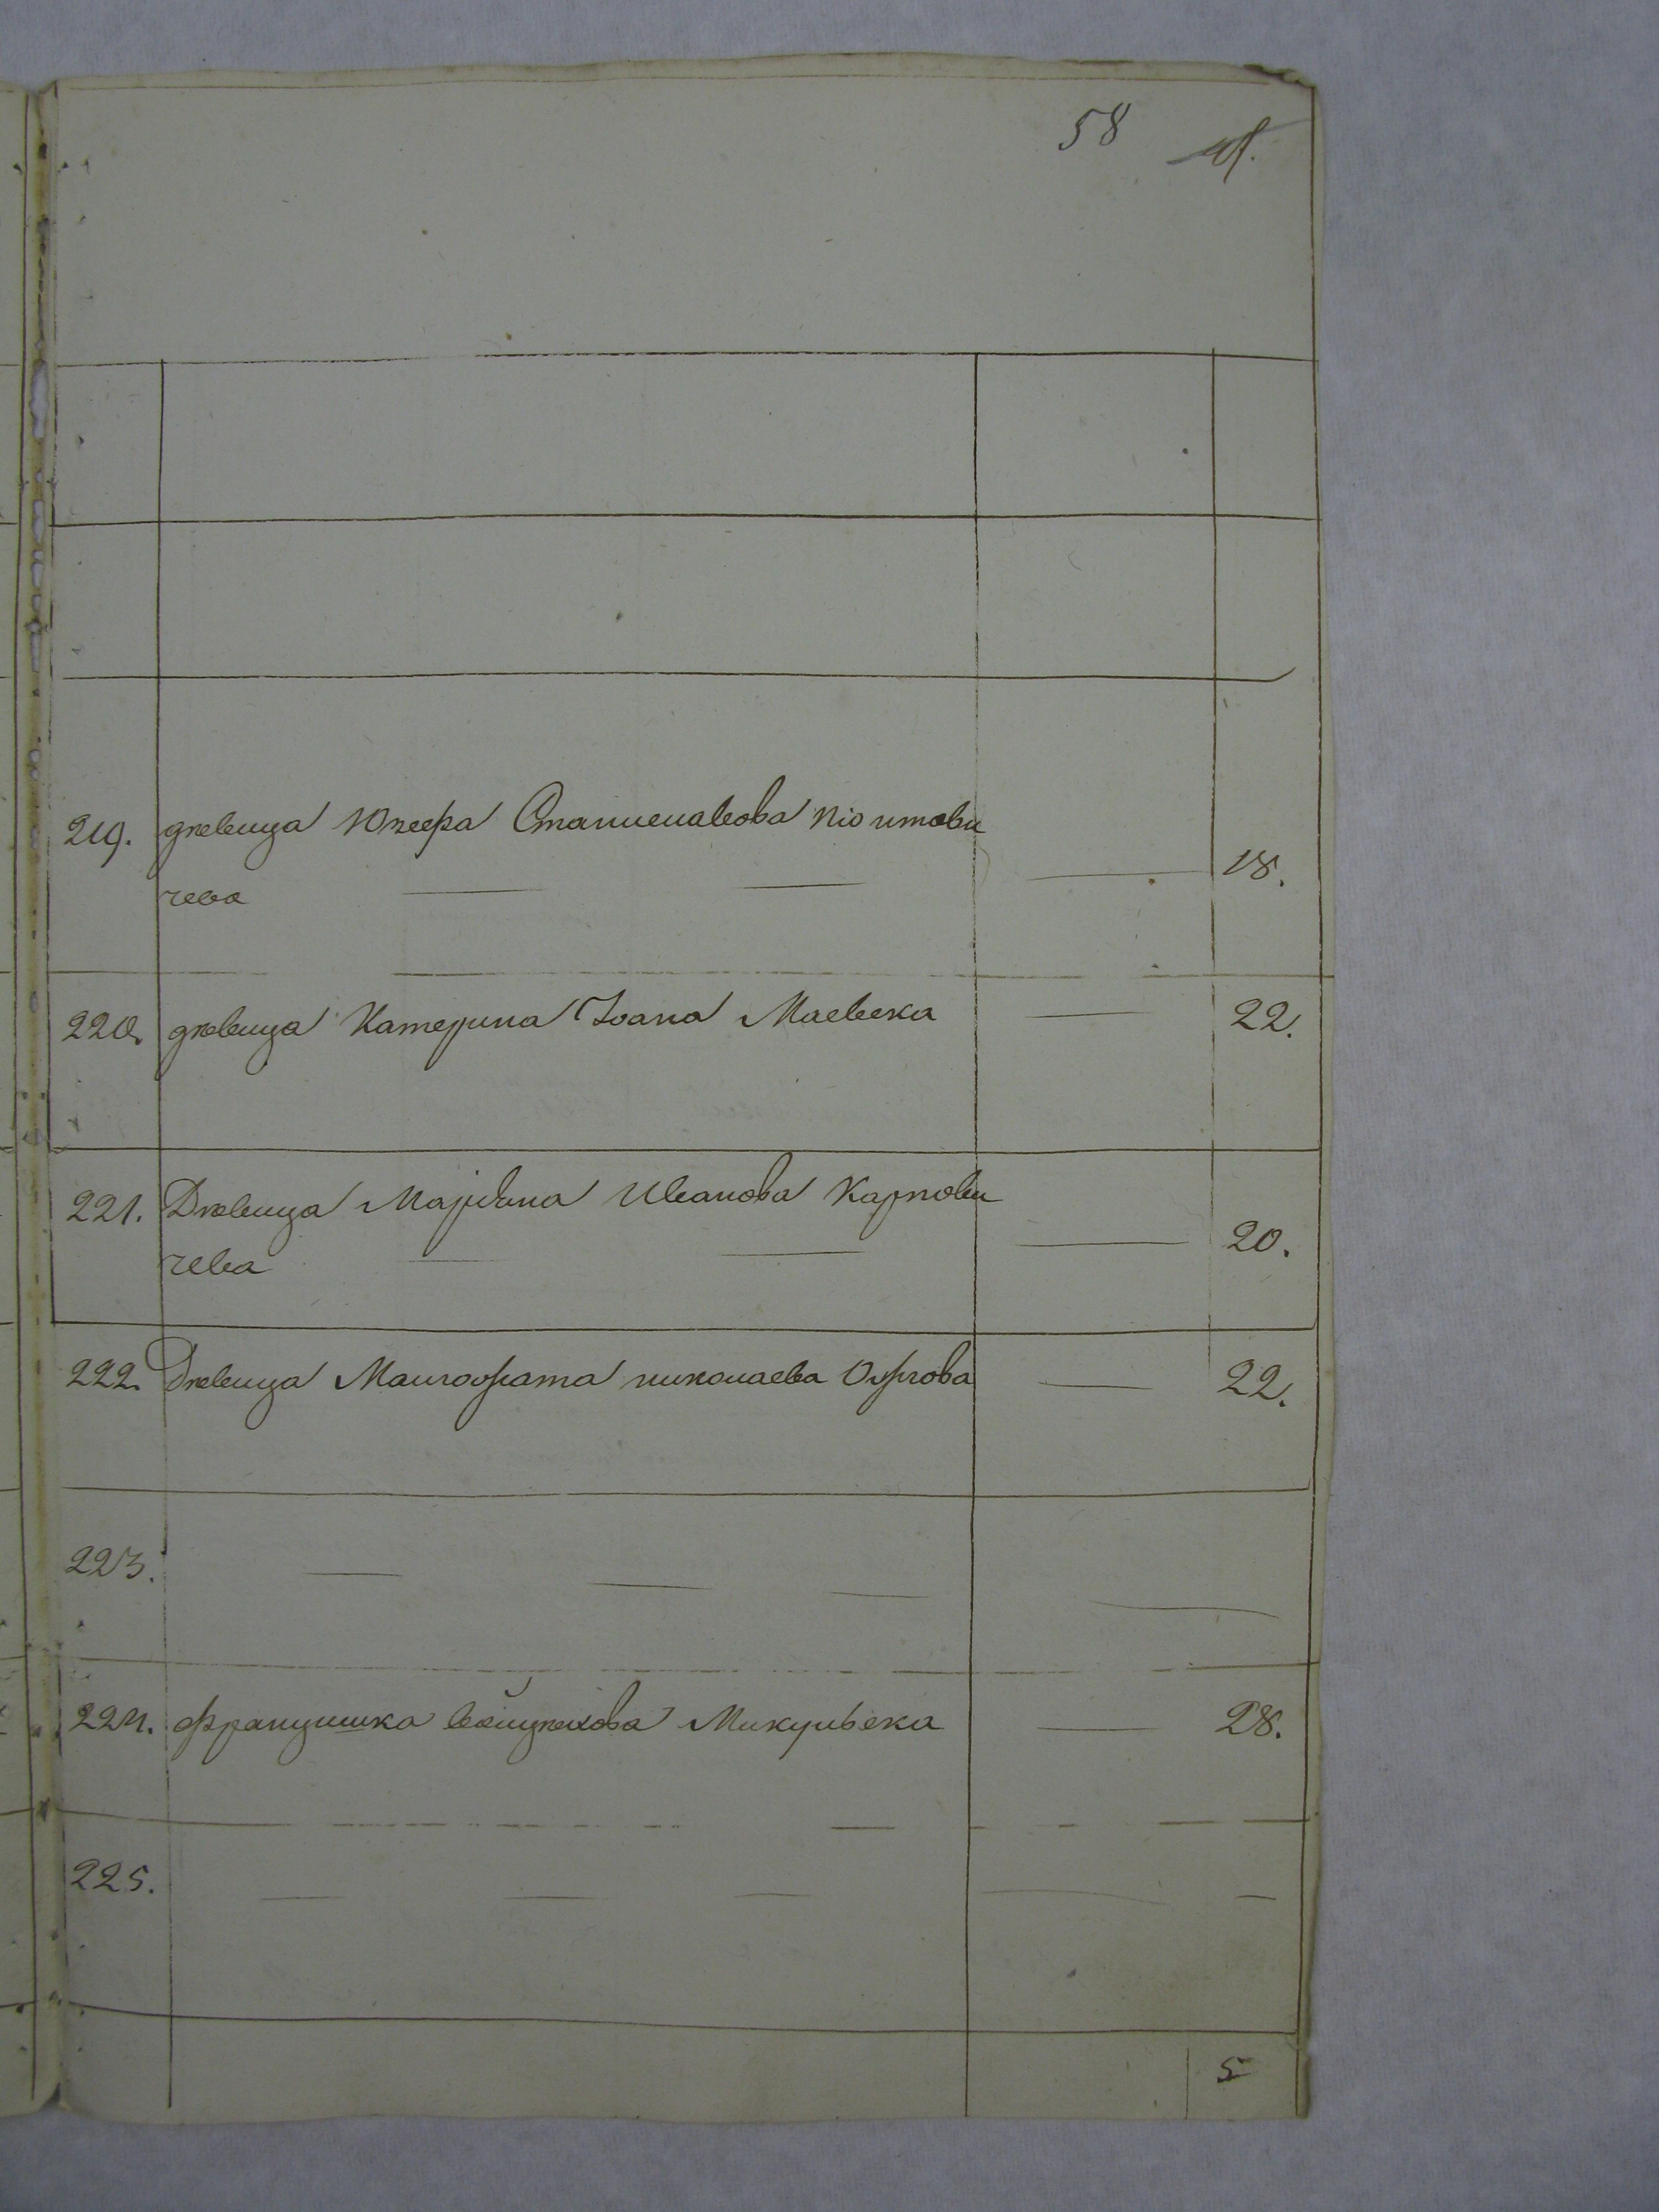 58
219. девица Юзефа Станиславова Піотови
чева 18.
220. девица Катерина Іоана Маевска 22.
221. Девица Мариана Иванова Карпови
чева 20.
222. Девица Малгората николаева 22.
223.
224. францишка войцехова Микульска 28.
225.
5